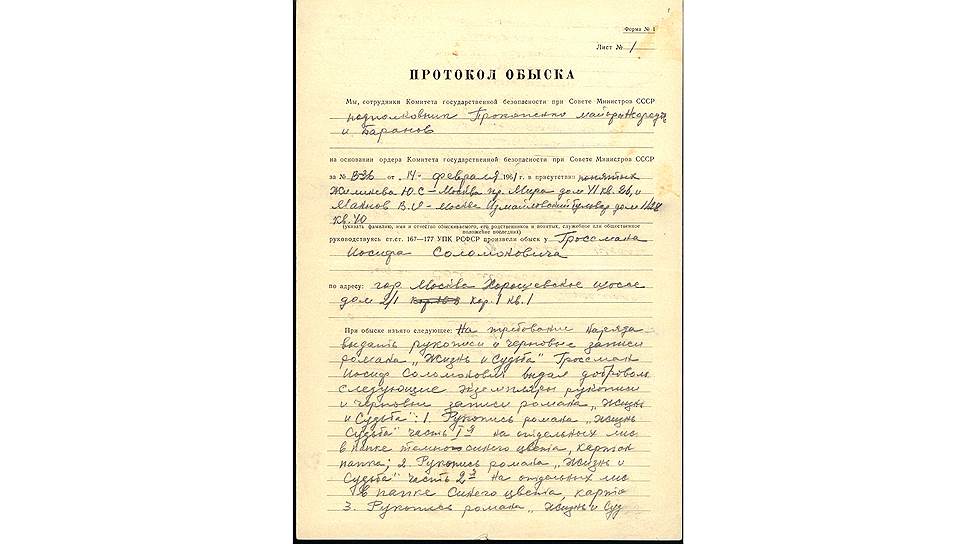 Форма № 1
Лист № 1
ПРОТОКОЛ ОБЫСКА
Мы, сотрудники Комитета государственной безопасности при Совете Министров СССР
подполковник Прокопенко майоры Нефедов
и Баранов
на основании ордера Комитета государственной безопасности при Совете Министров СССР
за № В-36 от „14“ февраля 1961 г. в присутствии понятых
Ю.С – Москва пр. Мира дом 41 кв. 26, и
В.И – Москва Измайловский бульвар дом
кв. 40
(указать фамилию, имя и отчество обыскиваемого, его родственников и понятых, служебное или общественное
положение последних)
руководствуясь ст.ст. 167—177 УПК РСФР произвели обыск у Гроссмана
Иосифа Соломоновича
по адресу: гор. Москва Хорошевское шоссе
дом 2/1 кор. 1 кв. 1
При обыске изъято следующее: На требование
выдать рукописи и черновые записи
романа „Жизнь и Судьба“ Гроссман
Иосиф Соломонович выдал доброволь
следующие экземпляры рукописи
и черновые записи романа „Жизнь
и Судьба“: 1. Рукопись романа „Жизнь
Судьба“ часть Iя на отдельных лис
в папке темно синего цвета, картон
папка; 2. Рукопись романа „Жизнь и
Судьба“ часть 2я на отдельных лис
в папке синего цвета, карто
3. Рукопись романа „Жизнь и Суд